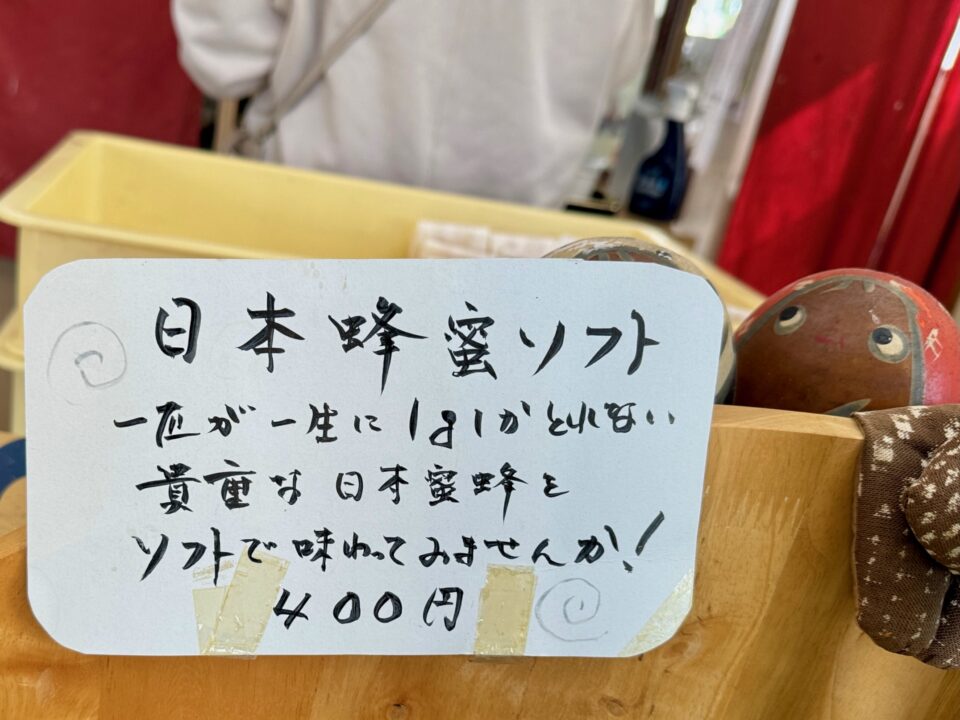 日本蜂蜜ソフト
一匹が一生に1gしかとれない
貴重な日本蜜蜂を
ソフトで味わってみませんか!
400円